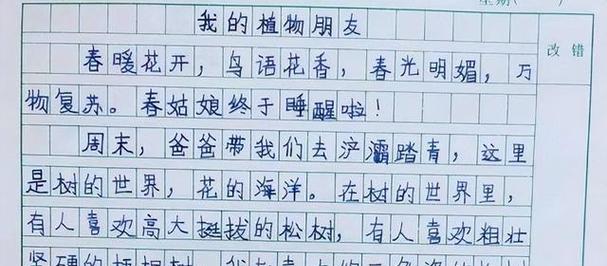 星期( )
我的植物朋友
改错
春暖花开，鸟语花香，春光明媚，万
物复苏。春姑娘终于睡醒啦！
周末，爸爸带我们去浐灞踏青，这里
是树的世界，花的海洋。在树的世界里，
有人喜欢高大挺拔的松树，有人喜欢粗壮
坚硬的梧桐树